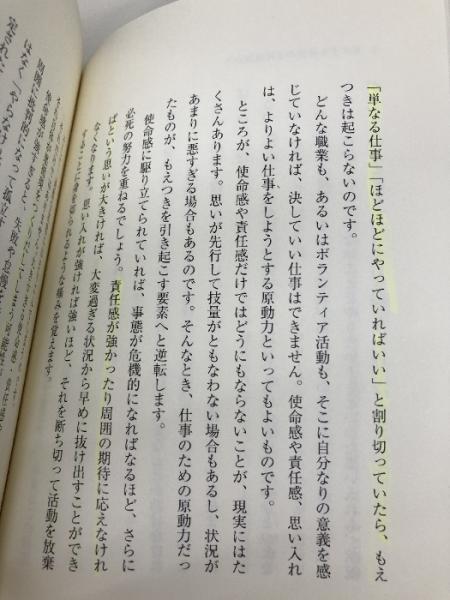 「単なる仕事」「ほどほどにやっていればいい」と割り切っていたら、もえ
つきは起こらないのです。
どんな職業も、あるいはボランティア活動も、そこに自分なりの意義を感
じていなければ、決していい仕事はできません。使命感や責任感、思い入れ
は、よりよい仕事をしようとする原動力といってもよいものです。
ところが、使命感や責任感だけではどうにもならないことが、現実にはた
くさんあります。思いが先行して技量がともなわない場合もあるし、状況が
あまりに悪すぎる場合もあるのです。そんなとき、仕事のための原動力だっ
たものが、もえつきを引き起こす要素へと逆転します。
使命感に駆り立てられていれば、事態が危機的になればなるほど、さらに
必死の努力を重ねるでしょう。責任感が強かったり周囲の期待に応えなけれ
ばという思いが大きければ、大変過ぎる状況から早めに抜け出すことができ
なくなります。思い入れが強ければ強いほど、それを断ち切って活動を放棄
することに身を切られるような痛みを覚えます。